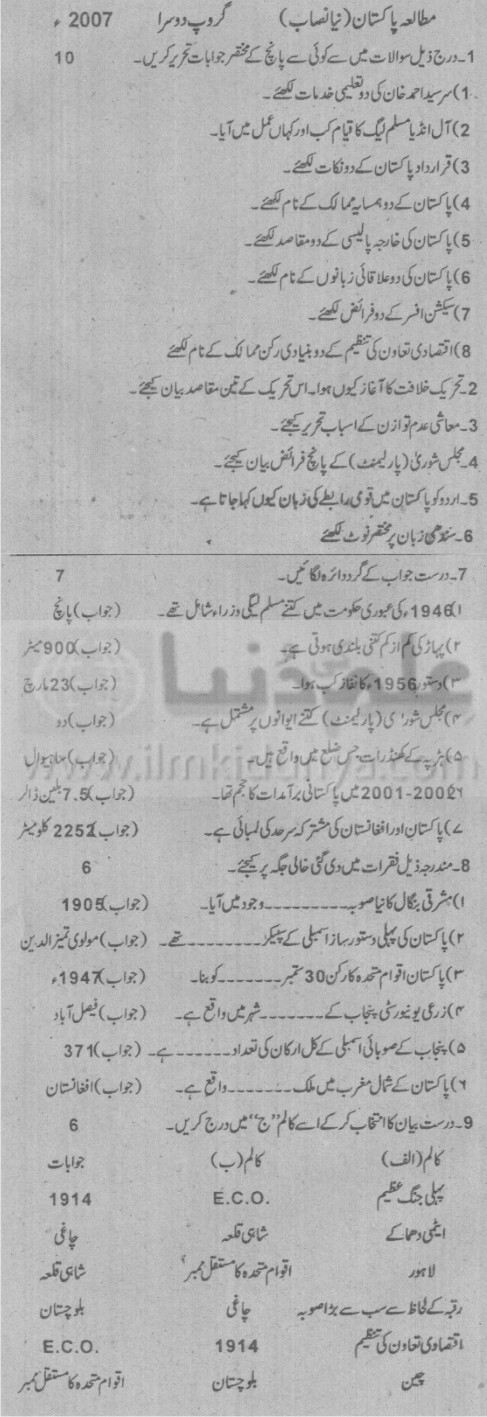 مطالعہ پاکستان (نیا نصاب) گروپ دوسرا 2007ء
1۔درج ذیل سوالات میں سے کوئی سے پانچ کے مختصر جوابات تحریر کریں۔ 10
1)سرسید احمد خان کی دو تعلیمی خدمات لکھئے۔
2)آل انڈیا مسلم لیگ کا قیام کب اور کہاں عمل میں آیا۔
3)قرارداد پاکستان کے دو نکات لکھئے۔
4)پاکستان کے دو ہمسایہ ممالک کے نام لکھئے۔
5)پاکستان کی خارجہ پالیسی کے دو مقاصد لکھئے۔
6)پاکستان کی دو علاقائی زبانوں کے نام لکھئے۔
7)سیکشن افسر کے دو فرائض لکھئے۔
8)اقتصادی تعاون کی تنظیم کے دو بنیادی رکن ممالک کے نام لکھئے
2۔تحریک خلافت کا آغاز کیوں ہوا۔اس تحریک کے تین مقاصد بیان کیجئے۔
3۔معاشی عدم توازن کے اسباب تحریر کیجئے۔
4۔مجلس شوریٰ (پارلیمنٹ) کے پانچ فرائض بیان کیجئے۔
5۔اردو کو پاکستان میں قومی رابطے کی زبان کیوں کہا جاتا ہے۔
6۔سندھی زبان پر مختصر نوٹ لکھئے
7۔درست جواب کے گرد دائرہ لگائیں۔ 7
۱)1946ء کی عبوری حکومت میں کتنے مسلم لیگی وزراء شامل تھے۔ (جواب) پانچ
۲)پہاڑ کی کم از کم کتنی بلندی ہوتی ہے۔ (جواب)900میٹر
۳)دستور 1956ء کا نفاذ کب ہوا۔ (جواب)23مارچ
۴)مجلس شوریٰ (پارلیمنٹ) کتنے ایوانوں پر مشتمل ہے۔ (جواب) دو
۵)ہڑپہ کے کھنڈرات جس ضلع میں واقع ہیں۔ (جواب) ساہیوال
۶)2001-2002 میں پاکستانی برآمدات کا حجم تھا۔ (جواب)7.5بلین ڈالر
۷)پاکستان اور افغانستان کی مشترکہ سرحد کی لمبائی ہے۔ (جواب)2252 کلومیٹر
علم کی دنیا
www.ilmkidunya.com
8۔مندرجہ ذیل فقرات میں دی گئی خالی جگہ پر کیجئے۔ 6
۱)مشرقی بنگال کا نیا صوبہ ۔۔۔۔۔۔۔۔ وجود میں آیا۔ (جواب)1905
۲)پاکستان کی پہلی دستور ساز اسمبلی کے سپیکر ۔۔۔۔۔۔۔۔ تھے۔ (جواب) مولوی تمیز الدین
۳)پاکستان اقوام متحدہ کا رکن 30 ستمبر ۔۔۔۔۔۔۔ کو بنا۔ (جواب)1947ء
۴)زرعی یونیورسٹی پنجاب کے ۔۔۔۔۔۔۔ شہر میں واقع ہے۔ (جواب) فیصل آباد
۵)پنجاب کے صوبائی اسمبلی کے کل ارکان کی تعداد ۔۔۔۔۔۔ ہے۔ (جواب)371
۶)پاکستان کے شمال مغرب میں ملک ۔۔۔۔۔۔۔ واقع ہے۔ (جواب) افغانستان
9۔درست بیان کا انتخاب کر کے اسے کالم "ج" میں درج کریں۔ 6
کالم (الف) کالم (ب) جوابات
پہلی جنگ عظیم E.C.O. 1914
ایٹمی دھماکے شاہی قلعہ چاغی
لاہور اقوام متحدہ کا مستقل ممبر شاہی قلعہ
رقبہ کے لحاظ سے سب سے بڑا صوبہ چاغی بلوچستان
اقتصادی تعاون کی تنظیم 1914 E.C.O.
چین بلوچستان اقوام متحدہ کا مستقل ممبر